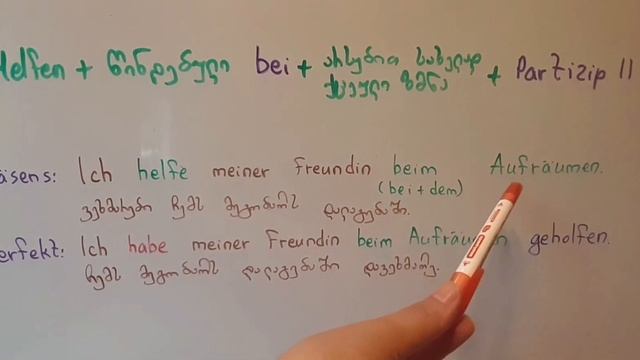 Helfen + წინდებული bei + არსებით სახელად + Partizip II
ქცეული ზმნა
äsens: Ich helfe meiner Freundin beim Aufräumen.
(bei + dem)
ვეხმარები ჩემს მეგობარს დალაგებაში.
erfekt: Ich habe meiner Freundin beim Aufräumen geholfen.
ჩემს მეგობარს დალაგებაში დავეხმარე.